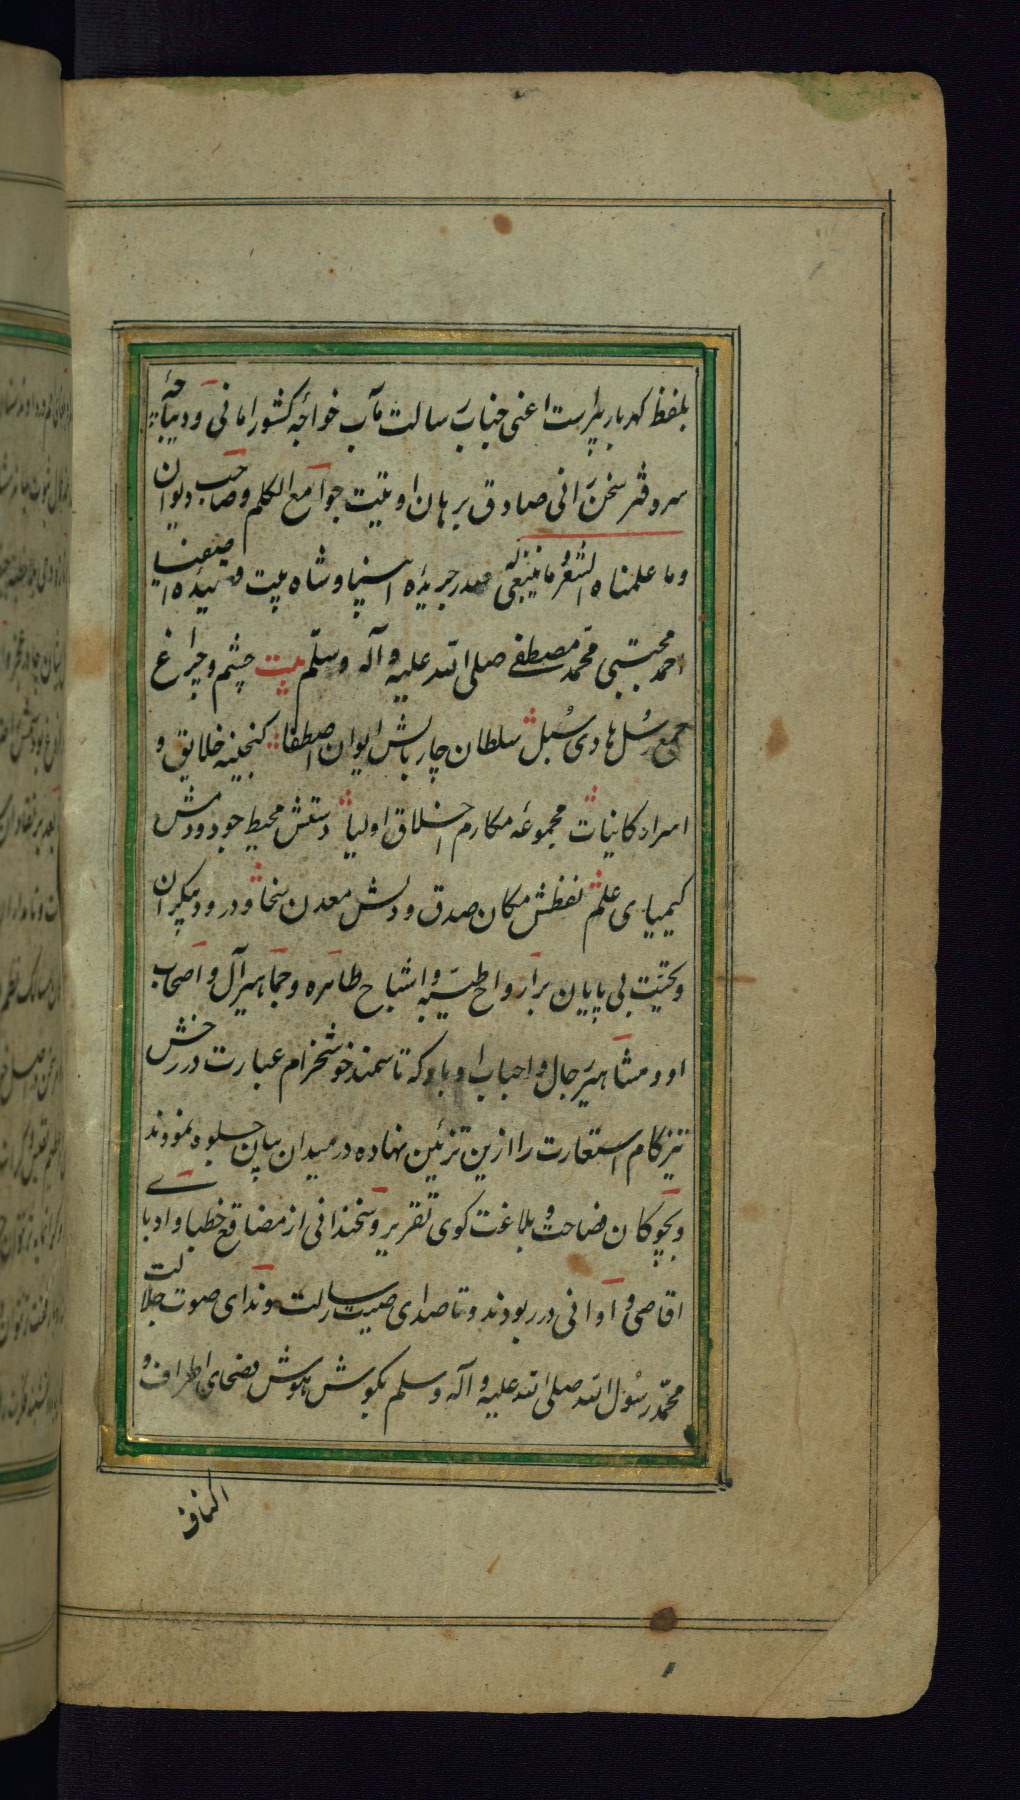 بلفظ گهربار پیراست اعنی جناب رسالت مآب خواجه کشور امانی و دیباجهٔ
سر دفتر سخن رانی صادق برهان اوتیت جوامع الکلم و صاحب دیوان
و ما علمناه الشعر و ما ینبغی له صدر جریدهٔ انبیا و شاه بیت قصیدهٔ اصفیا
احمد مجتبی محمد مصطفی صلی الله علیه و آله و سلم بیت چشم و چراغ
جمع رسل هادی سبل سلطان چار بالش ایوان اصطفا گنجینه خلایق و
اسرار کاینات مجموعه مکارم اخلاق اولیا دستش محیط جود و دمش
کیمیای علم لفظش مکان صدق و دلش معدن سخا و درود بیکران
و تحیت بی پایان بر ارواح طیبه و اشباح طاهره و جماهیر آل و اصحاب
او و مشاهیر رجال و احباب او باد که تا سمند خوشخرام عبارت در رخش
تیزکام استعارت را از زین تزئین نهاده در میدان بیان جلوه نمودند
و بچوگان فصاحت و بلاغت کوی تقریر و سخندانی از مصاقع خطبا و ادبای
اقاصی و ادانی در ربودند و تا صدای صیت رسالت و ندای صوت جلالت
محمد رسول الله صلی الله علیه و آله و سلم بگوش هوش فصحای اطراف و
اکناف